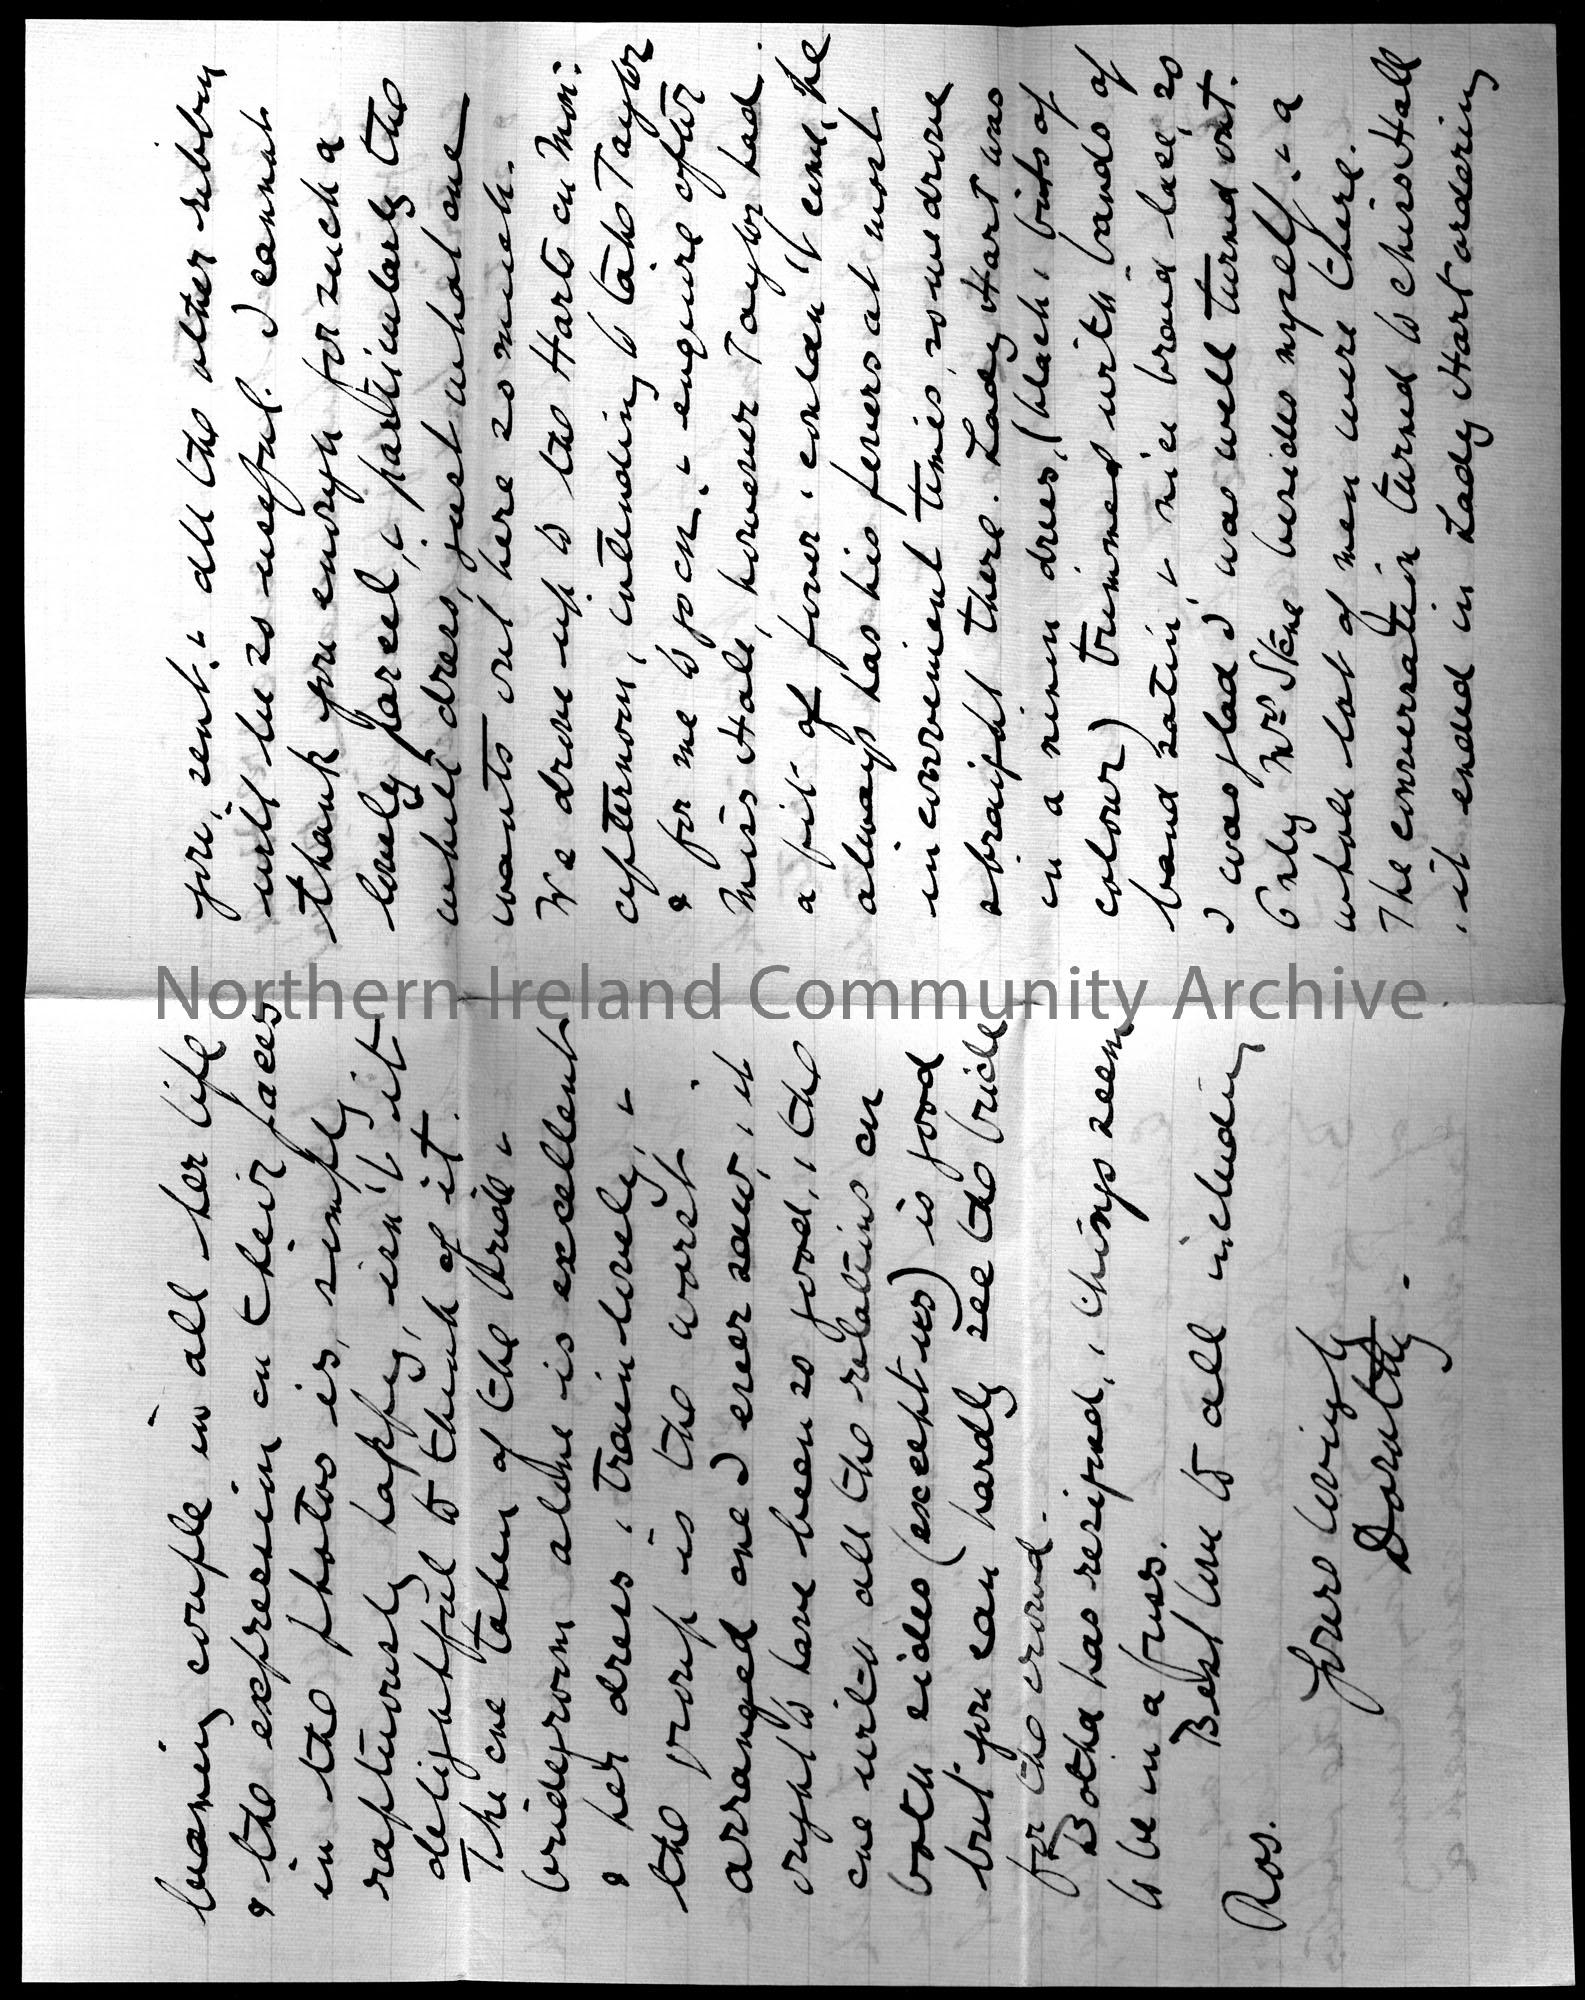 beaming couple in all her life
& the expression on their faces
in the photos is, simply
rapturously happy, isn't it
delightful to think of it.
The one taken of the bride &
bridegroom alone is excellent
& her dress & train lovely, &
the group is the worst
arranged one I ever saw, it
ought to have been so good, & the
one with all the relations on
both sides (except us) is good
but you can hardly see the bride
for the crowd.
Botha has resigned, & things seem
to be in a fuss.
Best love to all including
Ros.
Yours lovingly
Dorothy.
you, sent, & all the other ribbon
will be so useful. I cannot
thank you enough for such a
lovely parcel, & particularly the
white dress, just what one
wants out here so much.
We drove up to the Harts on Mon:
afternoon, intending to take Taylor
& for me to go on & enquire after
Miss Hale, however Taylor had
a fit of fever & couldn't come, he
always has his fevers at most
inconvenient times, so we drove
straight there. Lady Hart was
in a ninon dress, (black & bits of
colour) trimmed with bands of
band satin, & nice broad lace, so
I was glad I was well turned out.
Only Mrs Skene besides myself & a
whole lot of men were there.
The conversation turned to Chiso Hall
& it ended in Lady Hart ordering
Northern Ireland Community Archive